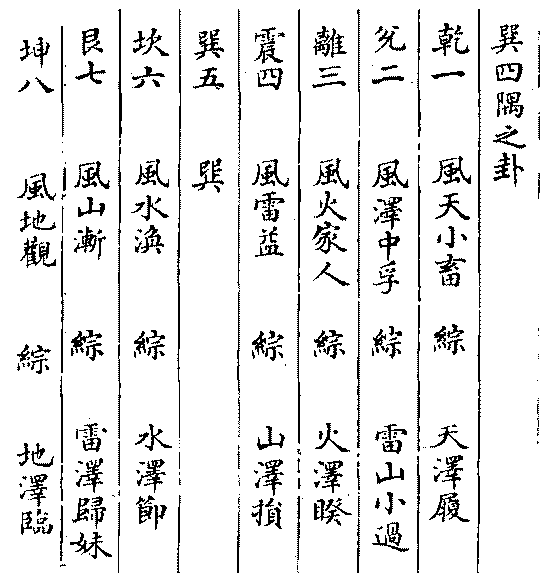 巽四隅之卦
乾一 風天小畜 綜 天澤履
兊二 風澤中孚 綜 雷山小過
離三 風火家人 綜 火澤睽
震四 風雷益 綜 山澤損
巽五 巽
坎六 風水渙 綜 水澤節
艮七 風山漸 綜 雷澤歸妹
坤八 風地觀 綜 地澤臨